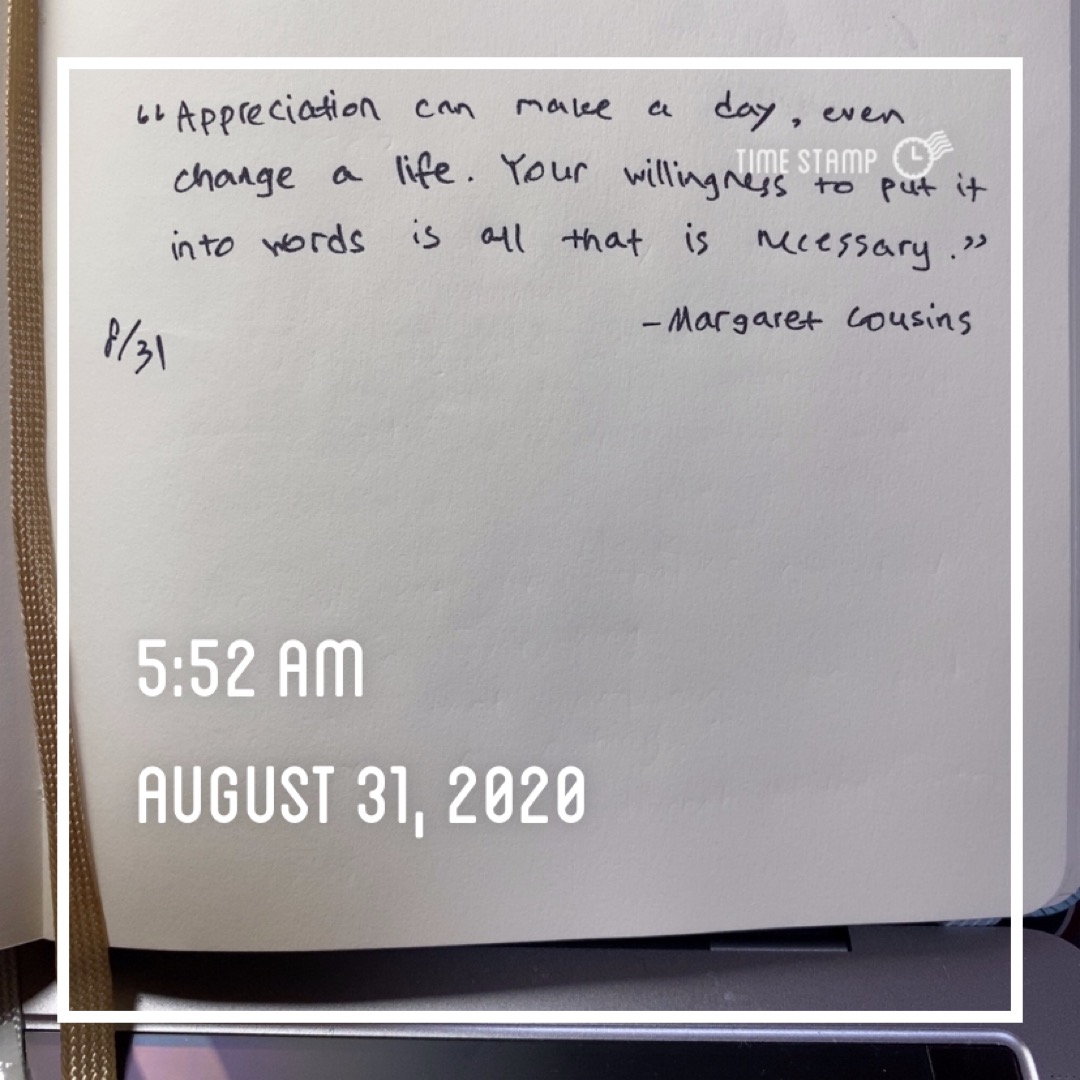 “Appreciation can make a day, even
TIME STAMP
change a life. Your willingness to put it
into words is all that is necessary.”
-Margaret Cousins
8/31
5:52 AM
AUGUST 31, 2020